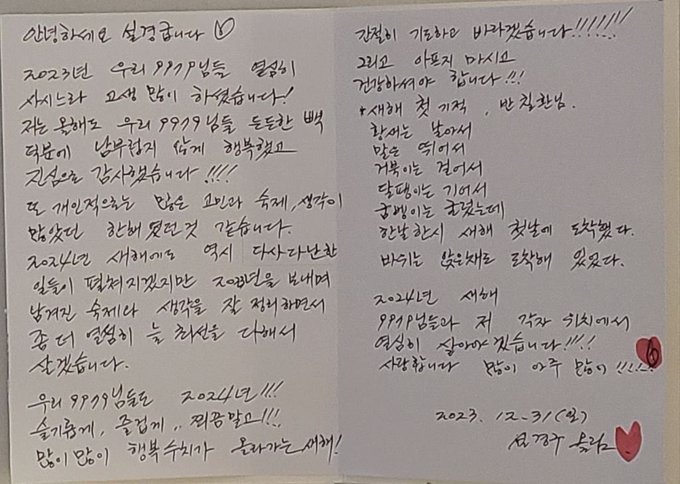 안녕하세요 설경굽니다
2023년 우리 9979님들 열심히
사시느라 고생 많이 하셨습니다!
저는 올해도 우리 9979님들 든든한 빽
덕분에 남부럽지 않게 행복했고
진심으로 감사했습니다 !!!!
또 개인적으로는 많은 고민과 숙제, 생각이
많았던 한해였던것 같습니다.
2024년 새해에도 역시 다사다난한
일들이 펼쳐지겠지만 2023년을 보내며
남겨진 숙제와 생각을 잘 정리하면서
좀 더 열심히 늘 최선을 다해서
살겠습니다.
우리 9979님들도 2024년!!!
슬기롭게, 즐겁게,, 찌끔말고!!!
많이많이 행복수치가 올라가는 새해!
간절히 기도하고 바라겠습니다!!!!!!
그리고 아프지 마시고
건강하셔야 합니다!!!
+ 새해 첫 기적, 반칠환님.
황새는 날아서
말은 뛰어서
거북이는 걸어서
달팽이는 기어서
굼벵이는 굴렀는데
한날한시 새해 첫날에 도착했다.
바위는 앉은채로 도착해 있었다.
2024년 새해
9979님들과 저 각자 위치에서
열심히 살아야겠습니다!!!!
사랑합니다 많이 아주 많이!!!!!
2023. 12. 31(일)
설경구 올림